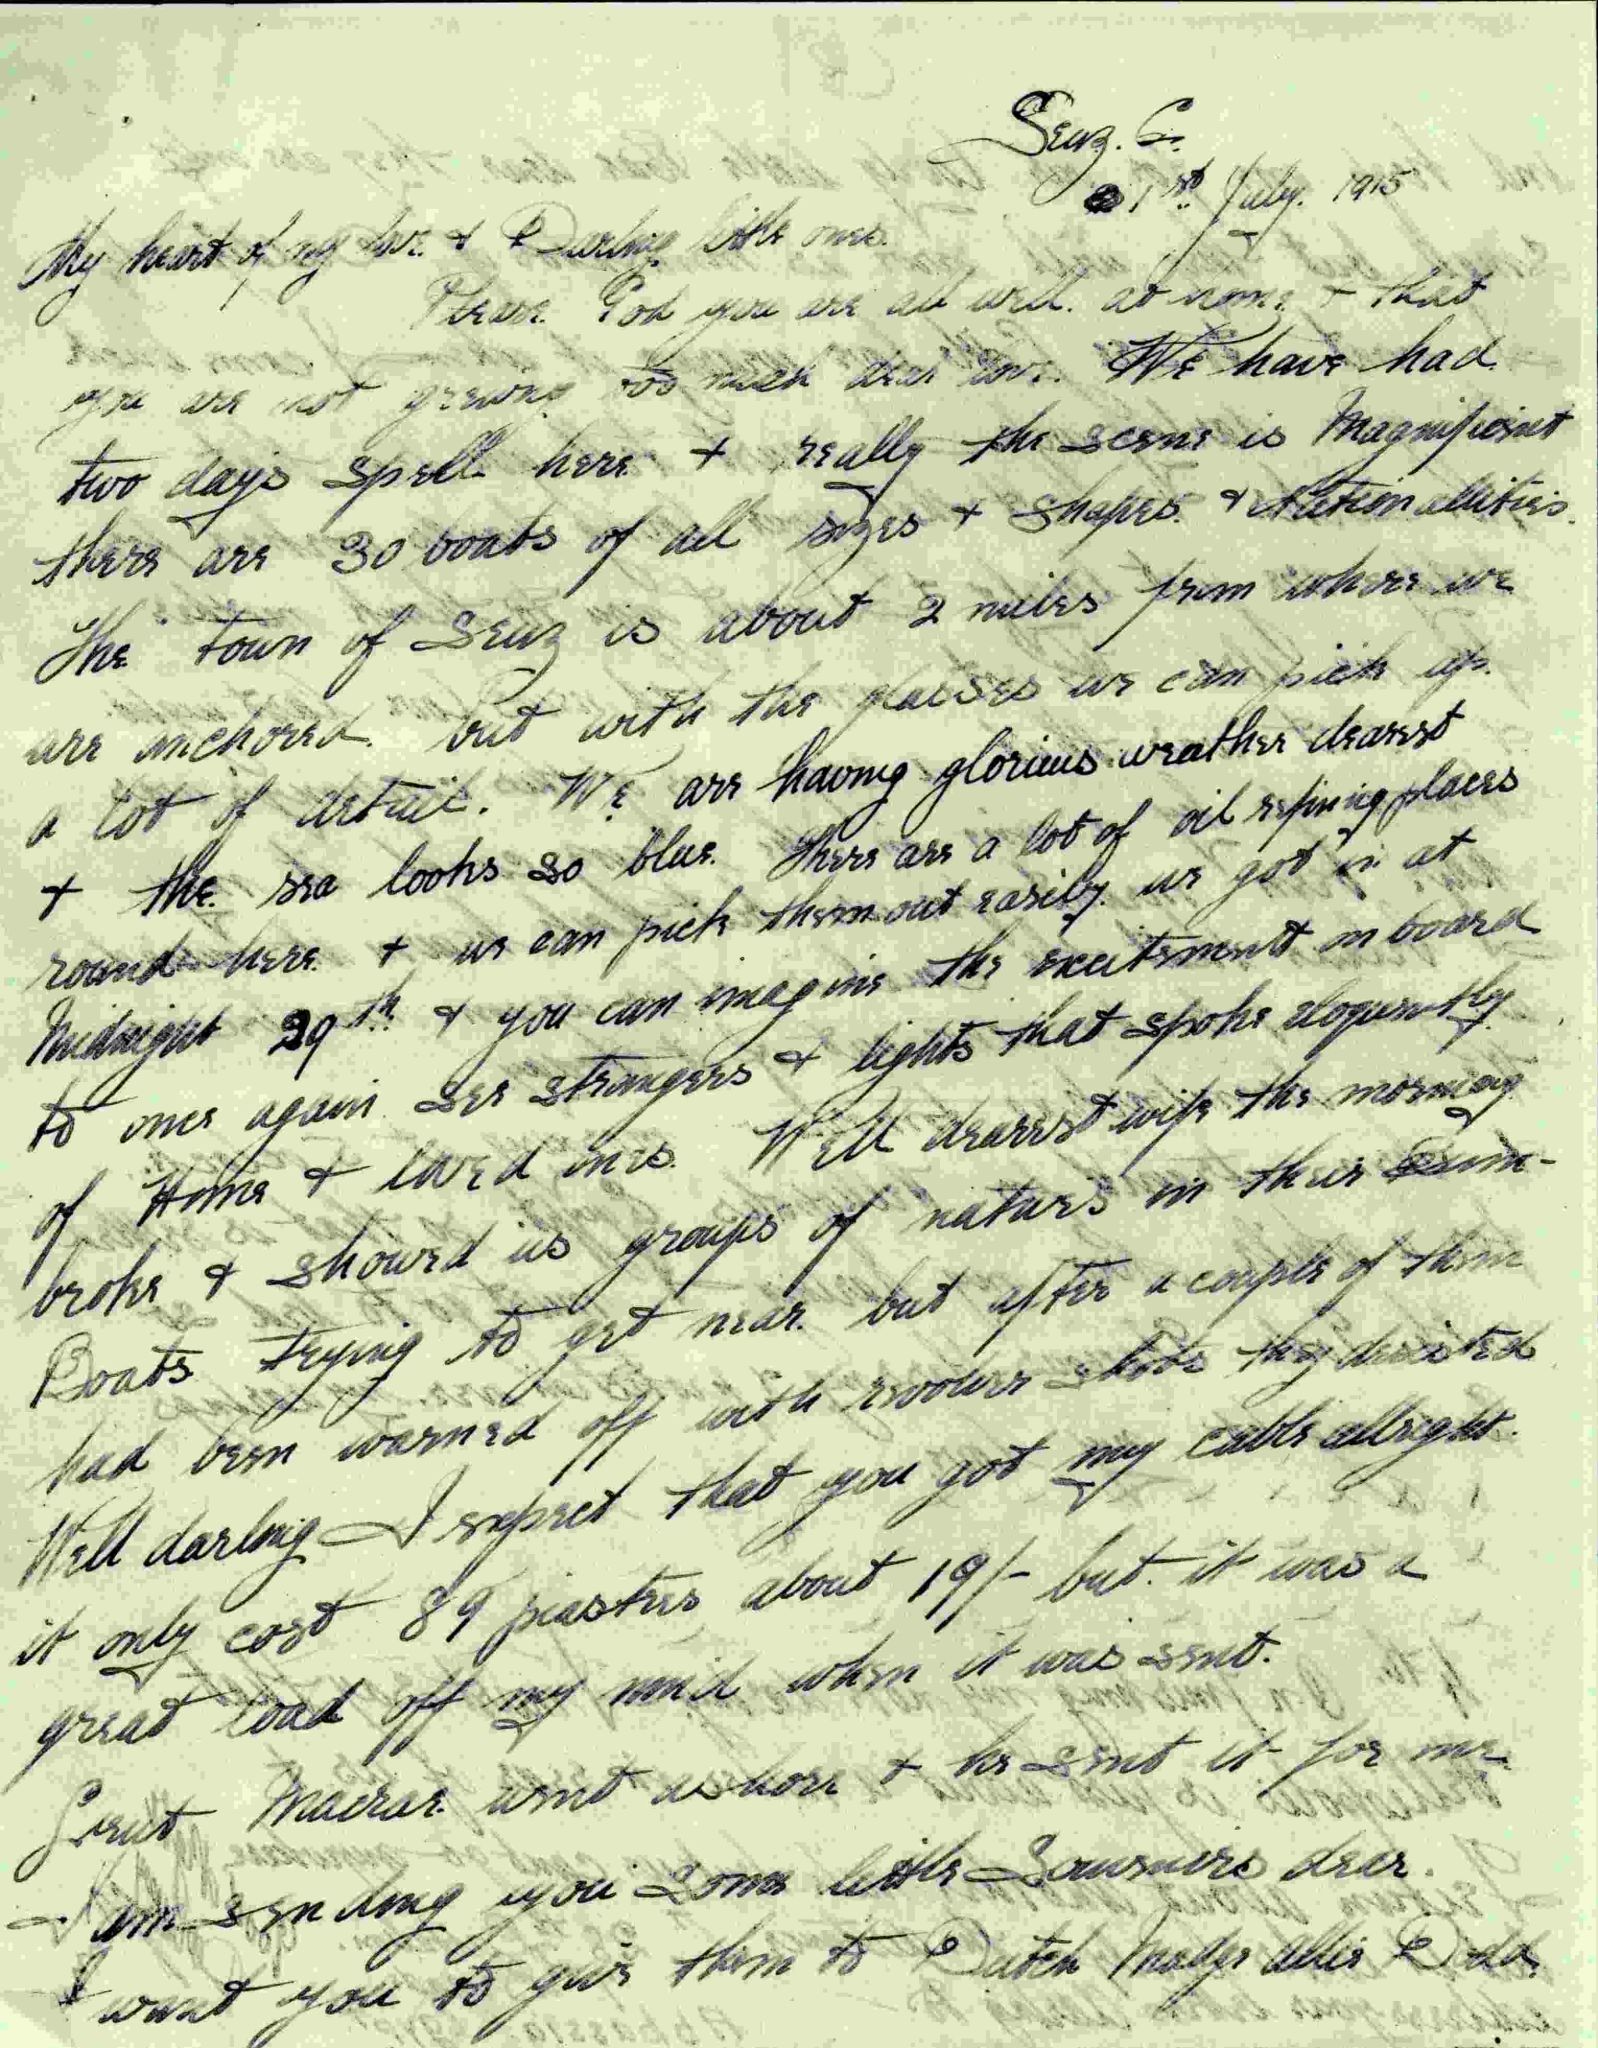 Suez. G.
1st July. 1915
My heart of my love & Darling little ones.
Please God you are all well. at home & that
you are not greiving too much dear love. We have had
two days spell here & really the scene is Magnificint
there are 30 boats of all sizes & shapes & Nationallities.
The town of Seuz is about 2 miles from where we
are anchored. but with the glasses we can pick up
a lot of detail. We are having glorious weather dearest
& the sea looks so blue. There are a lot of oil refining places
round here & we can pick them out easily. we got in at
Midnight 29th & you can imagine the excitement on board
to once again see strangers & lights that spoke eloquently
of Home & loved ones. Well dearest wife the morning
broke & showed us groups of natives in their Bum-
Boats trying to get near. but after a couple of them
had been warned off with revolver shots they desisted
Well darling I expect that you got my cable allright.
it only cost 89 piastres about 19/- but it was a
great load off my mind when it was sent.
Sergt Macrae went ashore & he sent it for me
I am sending you some little Souvenirs dear.
I want you to give them to Dutch Madge